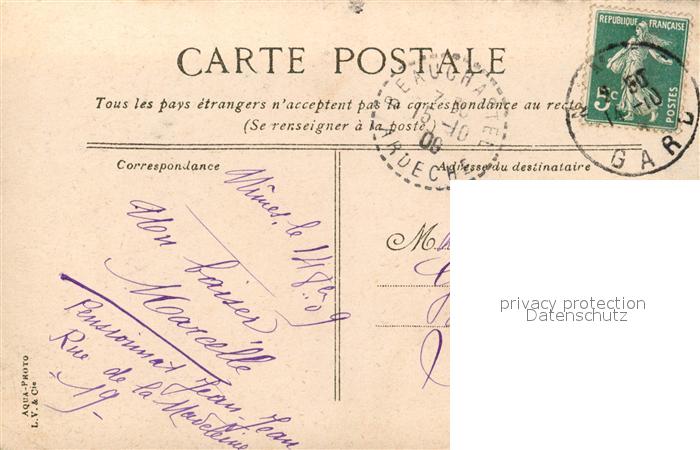 CARTE POSTALE
Tous les pays étrangers n'acceptent pas la correspondance au recto
(Se renseigner à la poste)
REPUBLIQUE FRANÇAISE
5c
POSTES
BEAUCHASTEL
15-10
09
ARDECHE
14-10
GARD
Correspondance
Adresse du destinataire
Nîmes, le 14 8bre 09
Un baiser
Marcelle
Pensionnat Jean-Jean
Rue de la Madeleine
-19-
M
privacy protection
Datenschutz
AQUA-PHOTO
L.V. & Cie